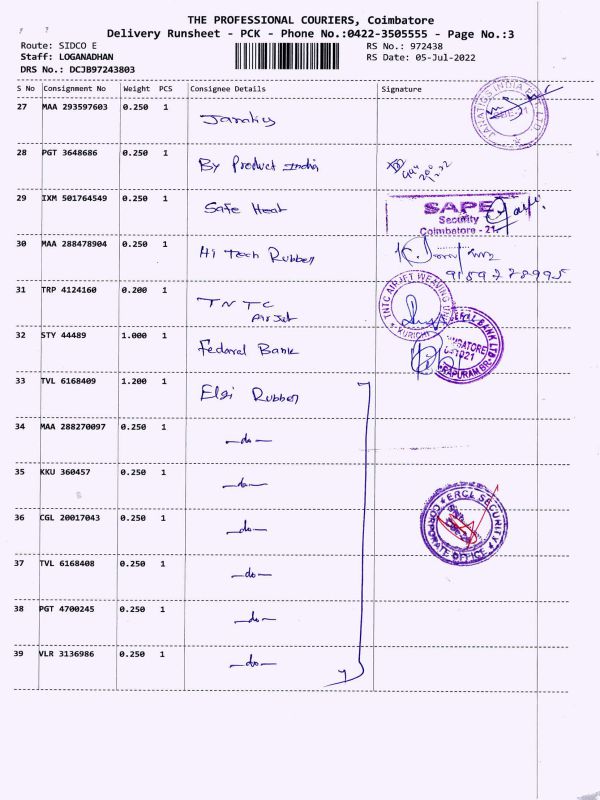 THE PROFESSIONAL COURIERS, Coimbatore
Delivery Runsheet - PCK - Phone No.:0422-3505555 - Page No.:3
Route: SIDCO E
RS No.: 972438
Staff: LOGANADHAN
RS Date: 05-Jul-2022
DRS No.: DCJB97243803
S No Consignment No Weight PCS Consignee Details Signature
27 MAA 293597603 0.250 1 Janatics
JANATICS INDIA PVT. LTD.
28 PGT 3648686 0.250 1 By Product India
29 IXM 501764549 0.250 1 Safe Heat
SAPE
Security
Coimbatore - 21
30 MAA 288478904 0.250 1 Hi Tech Rubber
9159778995
31 TRP 4124160 0.200 1 TNTC
Air Jet
TNTC AIRJET WEAVING UNIT
KURICHI
32 STY 44489 1.000 1 Federal Bank
33 TVL 6168409 1.200 1 Elgi Rubber
34 MAA 288270097 0.250 1 —do—
35 KKU 360457 0.250 1 —do—
36 CGL 20017043 0.250 1 —do—
ERCL SECURITY
CORPORATE OFFICE
37 TVL 6168408 0.250 1 —do—
38 PGT 4700245 0.250 1 —do—
39 VLR 3136986 0.250 1 —do—